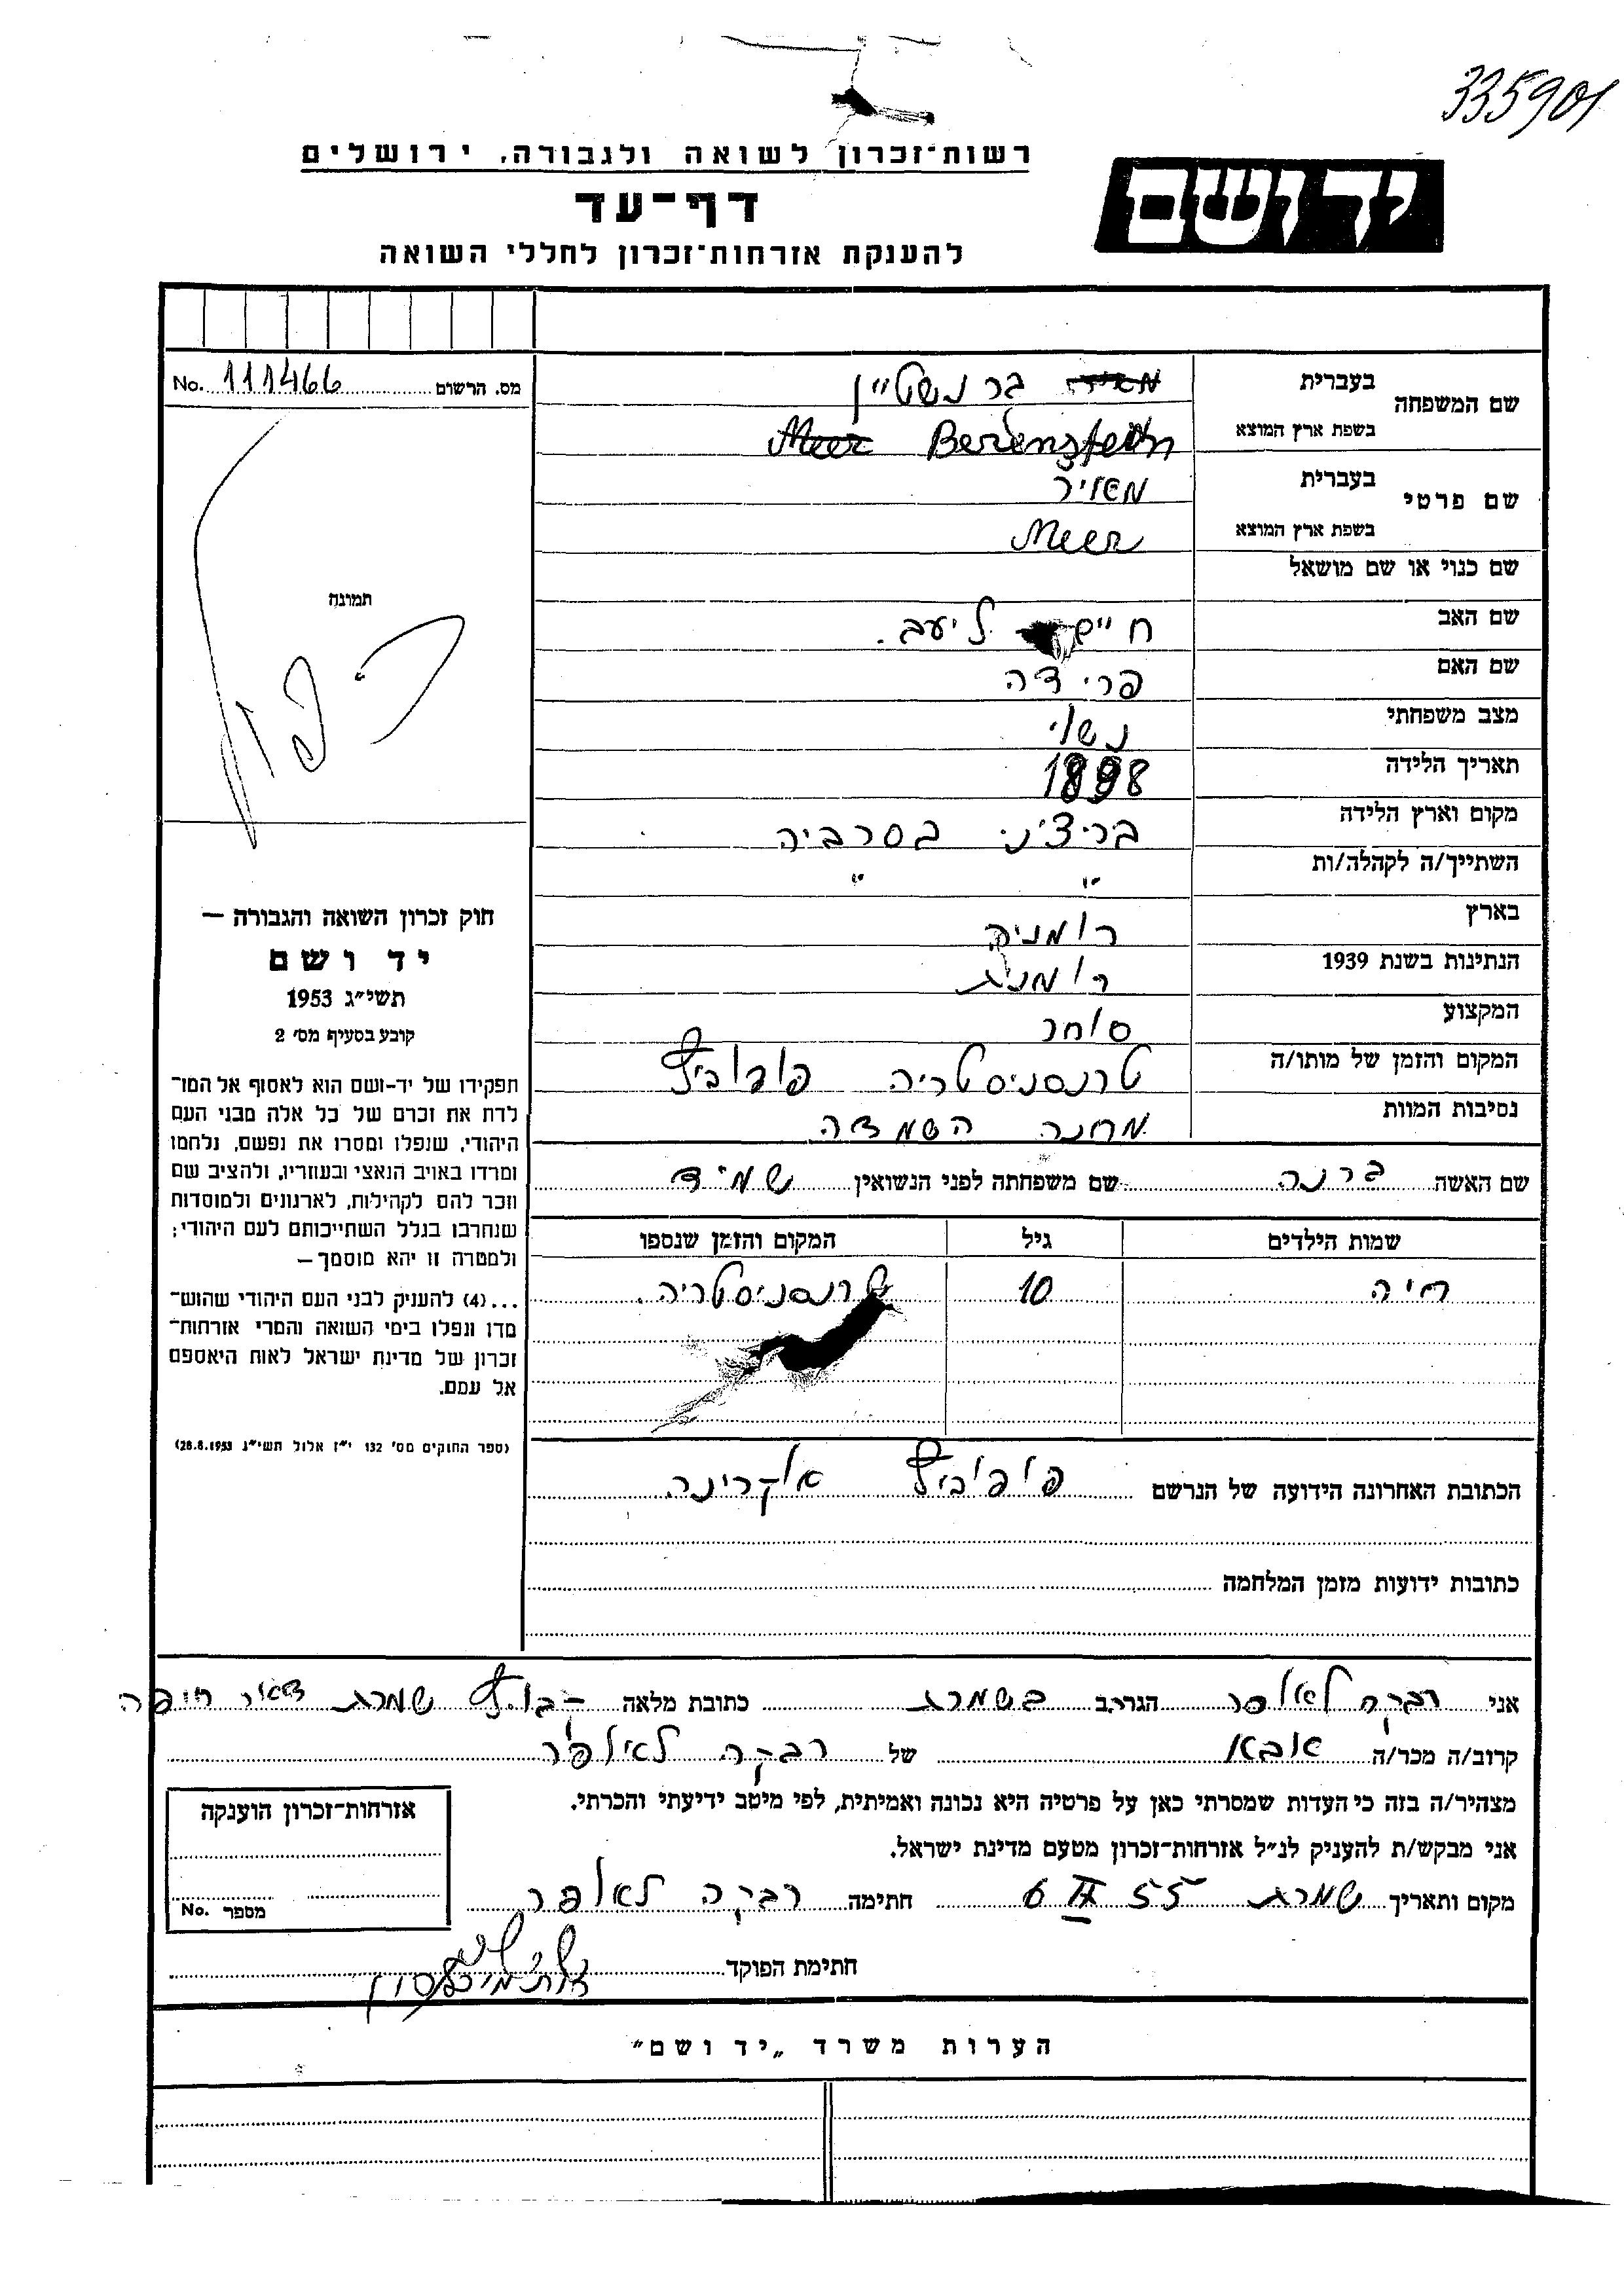 335901
רשות־זכרון לשואה ולגבורה, ירושלים
יד ושם
דף־עד
להענקת אזרחות־זכרון לחללי השואה
No. 111466 מס. הרשום
שם המשפחה
בעברית ברנשטיין
בשפת ארץ המוצא Meer Berenstein
שם פרטי
בעברית מאיר
בשפת ארץ המוצא Meer
שם כנוי או שם מושאל
שם האב חיים ליעב.
שם האם פרידה
מצב משפחתי נשוי
תאריך הלידה 1898
מקום וארץ הלידה בריצ'ני בסרביה
השתייך/ה לקהלה/ות " "
בארץ רומניה
הנתינות בשנת 1939 רומנית
המקצוע סוחר
המקום והזמן של מותו/ה טרנסניסטריה
נסיבות המוות מחנה השמדה
שם האשה ברנה שם משפחתה לפני הנשואין שמיד
שמות הילדים גיל המקום והזמן שנספו
חיה 10 טרנסניסטריה.
הכתובת האחרונה הידועה של הנרשם אוקרינה
כתובות ידועות מזמן המלחמה
תמונה
חוק זכרון השואה והגבורה —
יד ושם
תשי״ג 1953
קובע בסעיף מס׳ 2
תפקידו של יד-ושם הוא לאסוף אל המו־
לדת את זכרם של כל אלה מבני העם
היהודי, שנפלו ומסרו את נפשם, נלחמו
ומרדו באויב הנאצי ובעוזריו, ולהציב שם
וזכר להם לקהילות, לארגונים ולמוסדות
שנחרבו בגלל השתייכותם לעם היהודי;
ולמטרה זו יהא מוסמך —
...(4) להעניק לבני העם היהודי שהוש־
מדו ונפלו בימי השואה והמרי אזרחות־
זכרון של מדינת ישראל לאות היאספם
אל עמם.
(ספר החוקים מס׳ 132 י״ז אלול תשי״ג 28.8.1953)
אני רבקה לאופר הגר/ב בשמרת כתובת מלאה קבוצת שמרת דאר חיפה
קרוב/ה מכר/ה אבא של רבקה לאופר
מצהיר/ה בזה כי העדות שמסרתי כאן על פרטיה היא נכונה ואמיתית, לפי מיטב ידיעתי והכרתי.
אני מבקש/ת להעניק לנ״ל אזרחות־זכרון מטעם מדינת ישראל.
מקום ותאריך שמרת 6 IX 55 חתימה רבקה לאופר
חתימת הפוקד
אזרחות־זכרון הוענקה
No. מספר
הערות משרד „יד ושם״